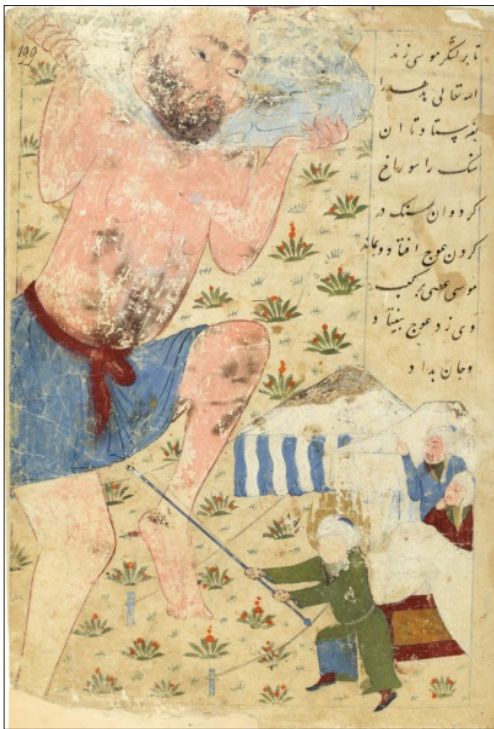 ۱۹۹
تا بر لشکر موسی زند
الله تعالی هدهد را
بفرستاد تا ان
سنک را سوراخ
کرد و ان سنک در
کردن عوج افتاد و بماند
موسی عصی بر کعب
وی زد عوج بیفتاد
و جان بداد